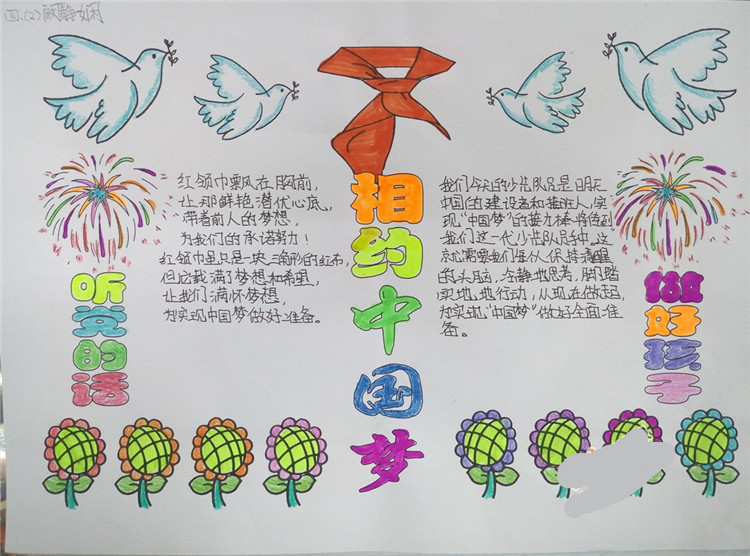 四.(2)
相约中国梦
听党的话
红领巾飘在胸前,
让那鲜艳潜伏心底。
带着前人的梦想,
为我们的承诺努力!
红领巾虽只是一块三角形的红布,
但它载满了梦想和希望,
让我们满怀梦想,
为实现中国梦做好准备。
我们今天的少先队员是明天
中国的建设者和接班人,实
现“中国梦”的接力棒将传到
我们这一代少先队员手中,这
就需要我们每个人保持清醒
的头脑,冷静地思考,脚踏
实地,地行动,从现在做起,
为实现“中国梦”做好全面准
备。
做好孩子